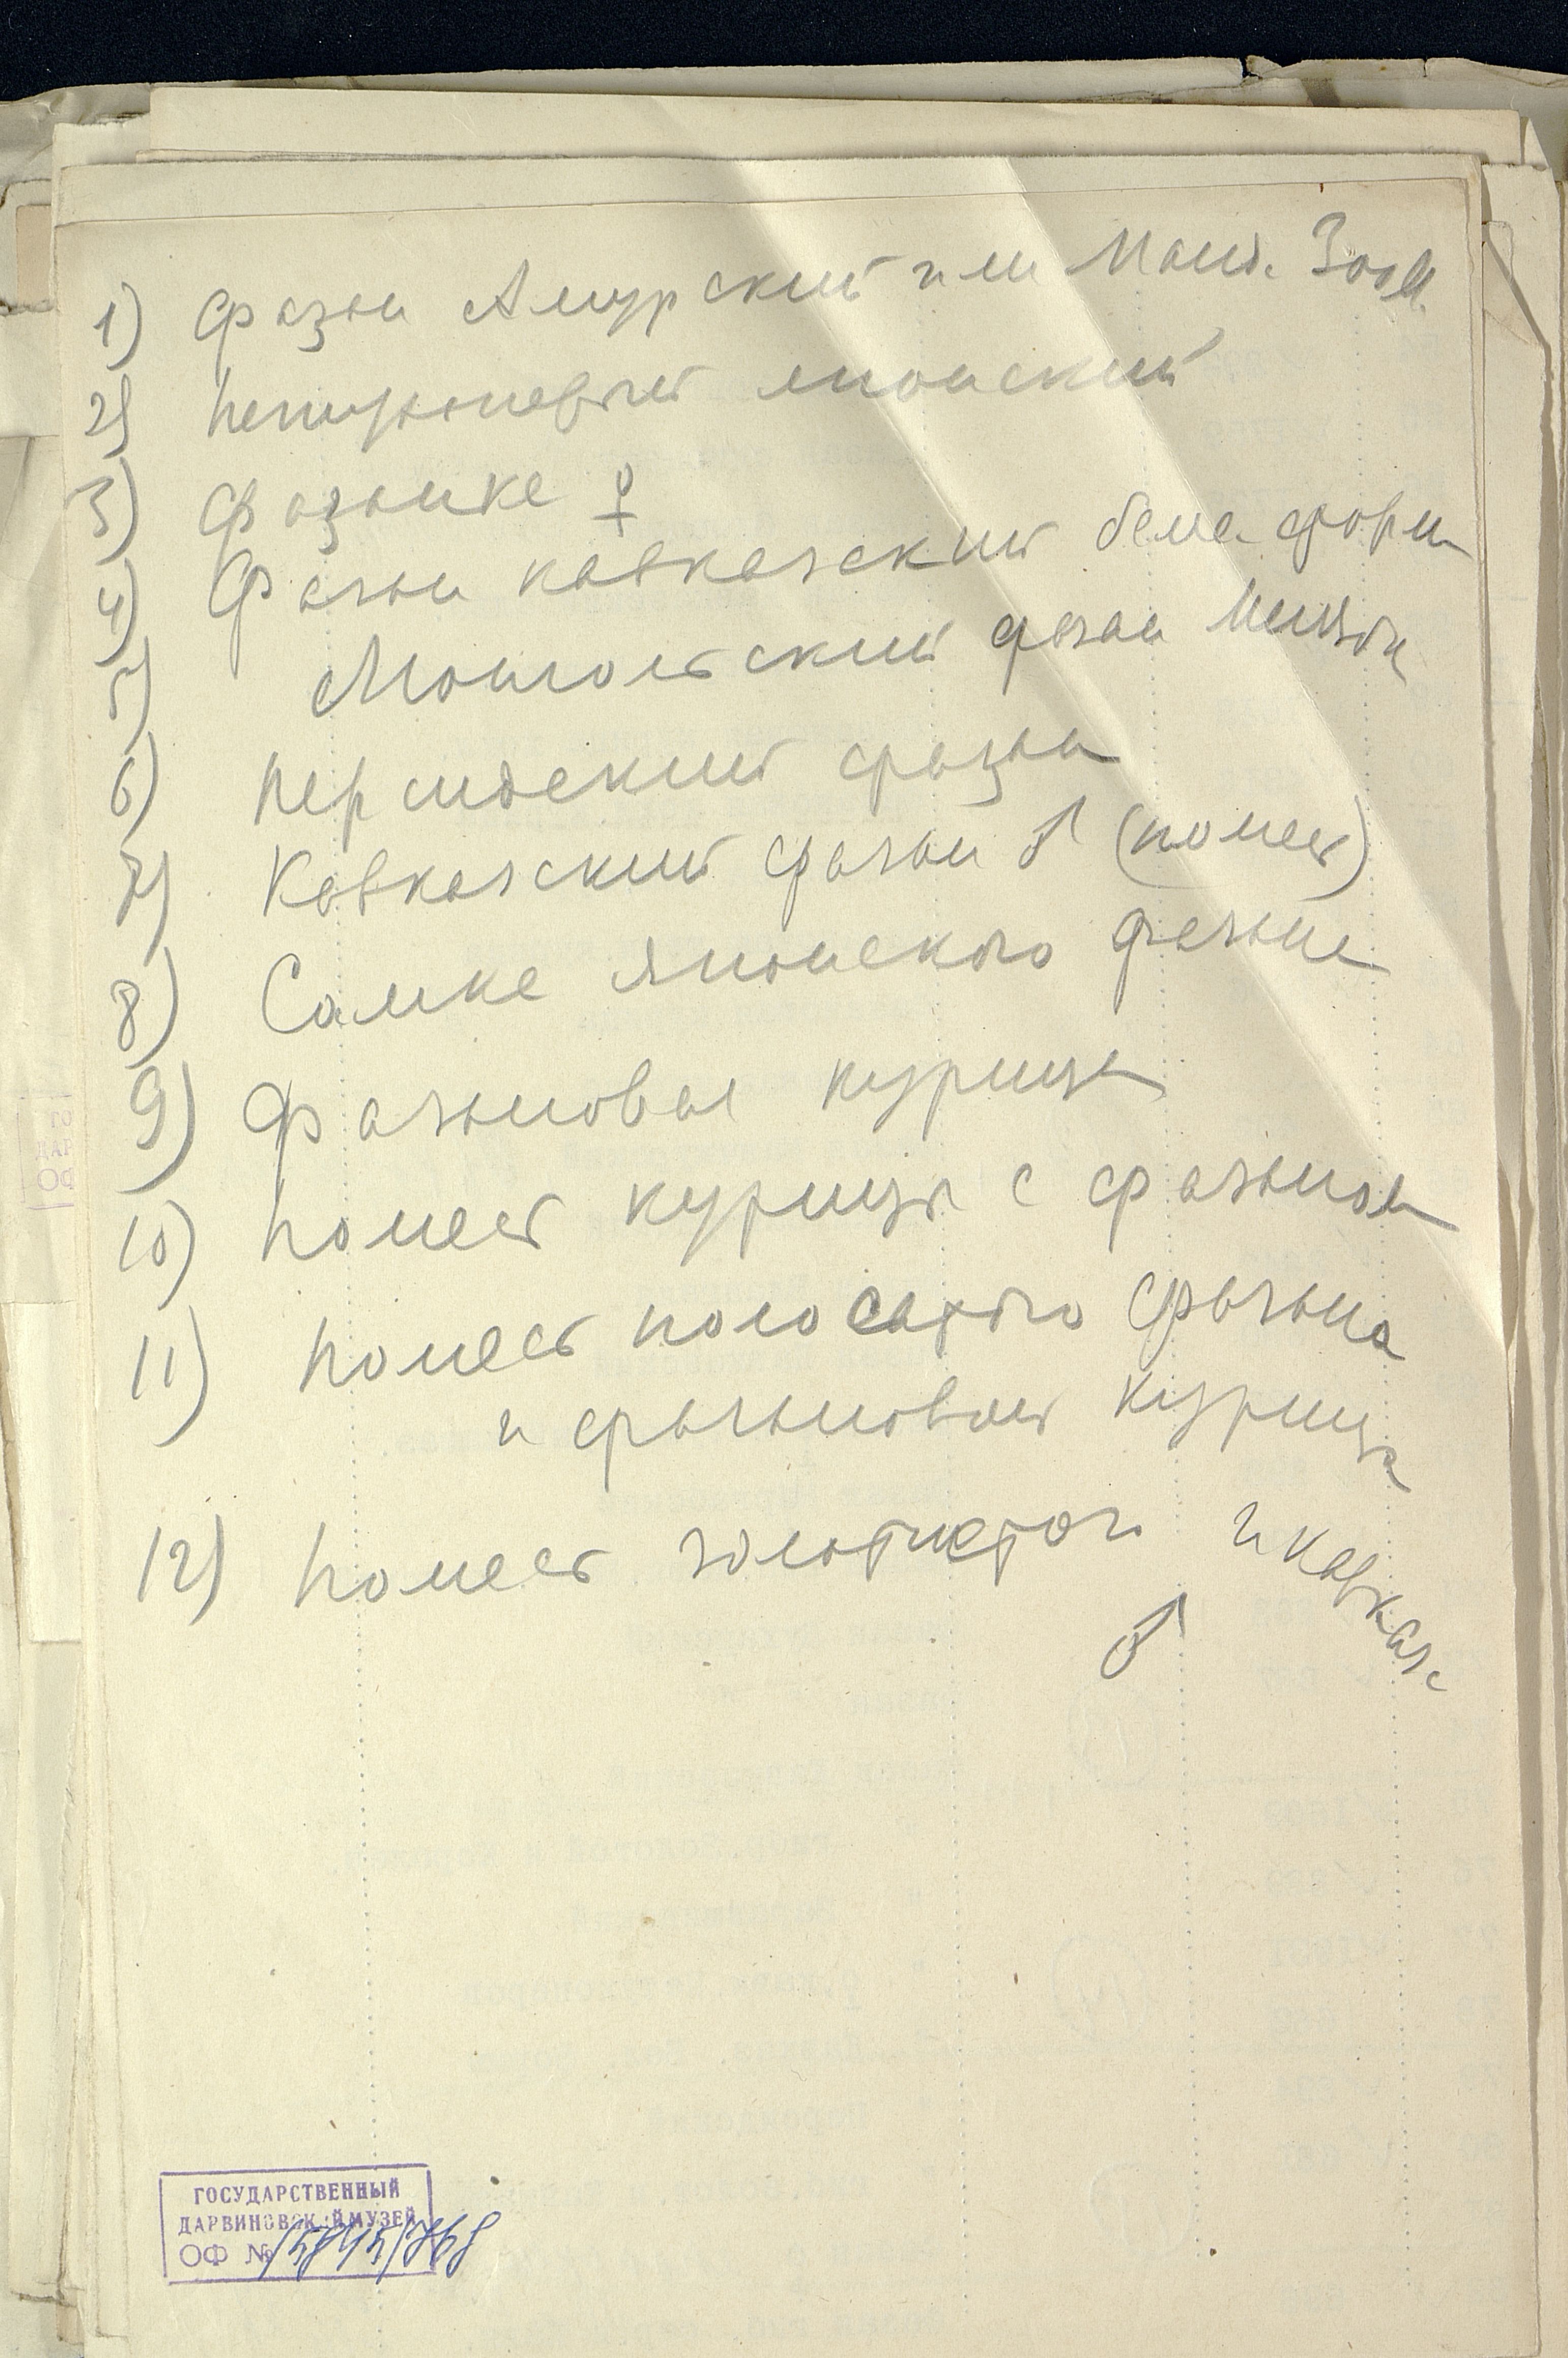 1) Фазан Амурский или Манд. Зооп.
2) Петушоперый японский
3) Фазанка ♀
4) Фазан кавказский белая форма
5) Монгольский фазан
6) Персидский фазан
7) Кавказский фазан ♂ (помесь)
8) Самка японского фазана
9) Фазановая курица
10) Помесь курицы с фазаном
11) Помесь полосатого фазана
и фазановой курицы
12) Помесь и кавказ.
♂
ГОСУДАРСТВЕННЫЙ
ДАРВИНОВСКИЙ МУЗЕЙ
ОФ № 15845/768